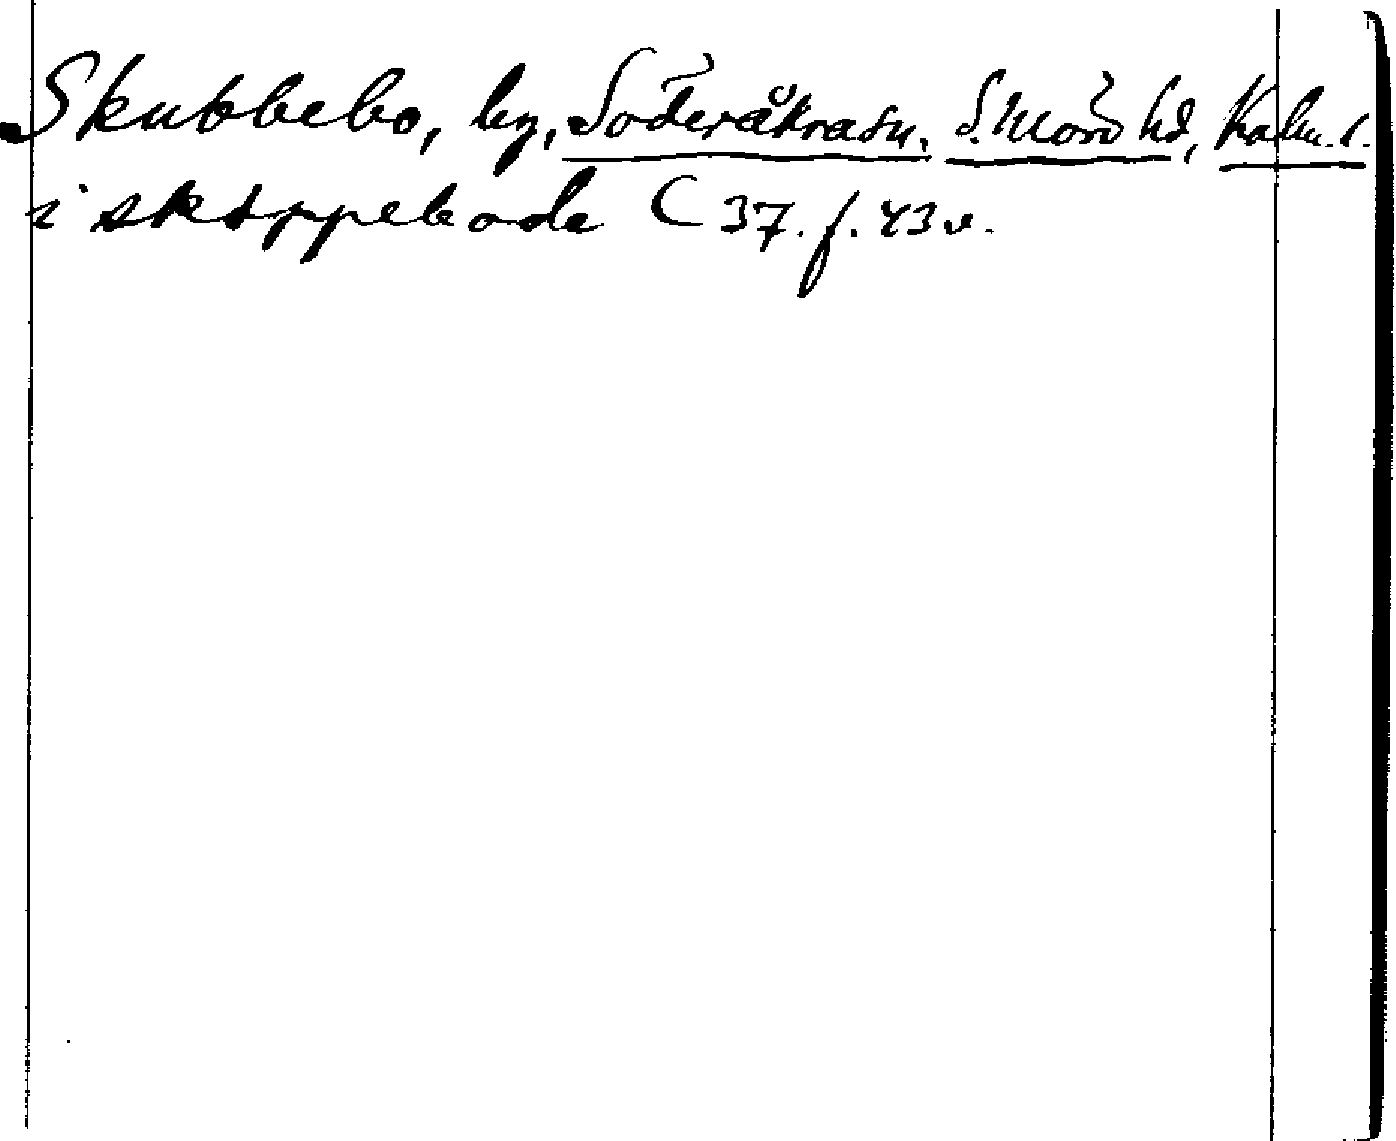 Skubbebo, by, Söderåkra sn. S. Möre hd, Kalm. l.
i skøppebode C 37. f. 43 v.